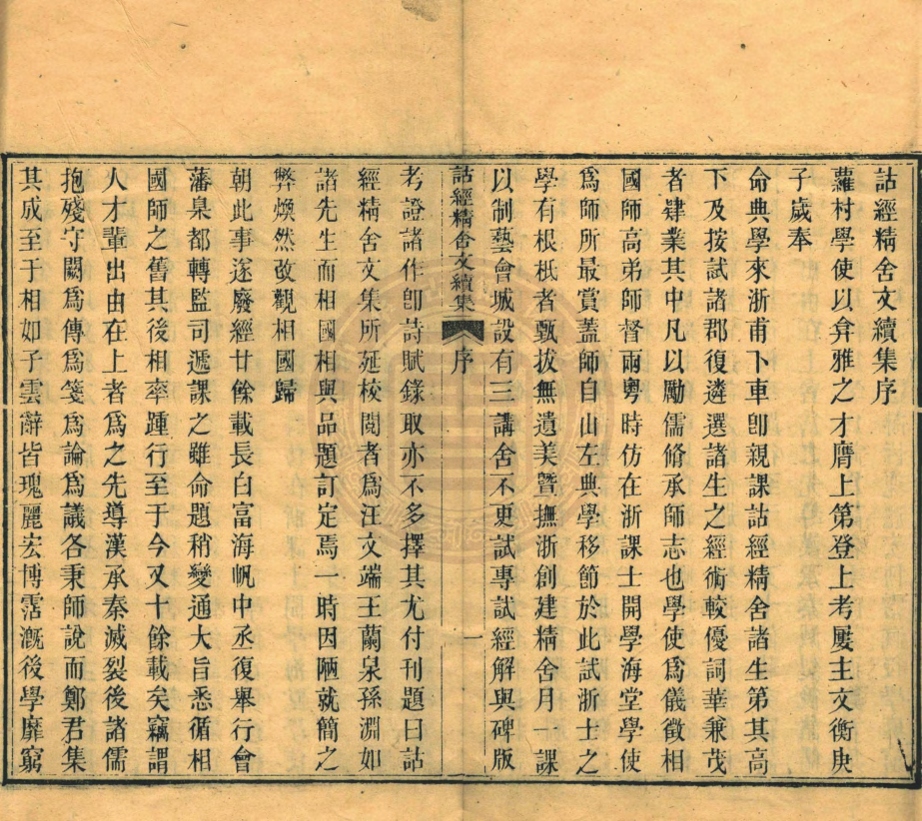 詁經精舍文續集序
蘿村學使以弇雅之才膺上第登上考屢主文衡庚
子歲奉
命典學來浙甫下車卽親課詁經精舍諸生第其高
下及按試諸郡復遴選諸生之經術較優詞華兼茂
者肄業其中凡以勵儒脩承師志也學使爲儀徵相
國師高弟師督兩粵時仿在浙課士開學海堂學使
爲師所最賞蓋師自山左典學移節於此試浙士之
學有根柢者甄拔無遺美暨撫浙創建精舍月一課
以制藝會城設有三講舍不更試專試經解與碑版
詁經精舍文續集 序 一
考證諸作卽詩賦錄取亦不多擇其尤付刊題曰詁
經精舍文集所延校閱者爲汪文端王蘭泉孫淵如
諸先生而相國相與品題訂定焉一時因陋就簡之
弊煥然改觀相國歸
朝此事遂廢經廿餘載長白富海帆中丞復舉行會
藩臬都轉監司遞課之雖命題稍變通大旨悉循相
國師之舊其後相率踵行至于今又十餘載矣竊謂
人才輩出由在上者爲之先導漢承秦滅裂後諸儒
抱殘守闕爲傳爲箋爲論爲議各秉師說而鄭君集
其成至于相如子雲辭皆瑰麗宏博霑漑後學靡窮